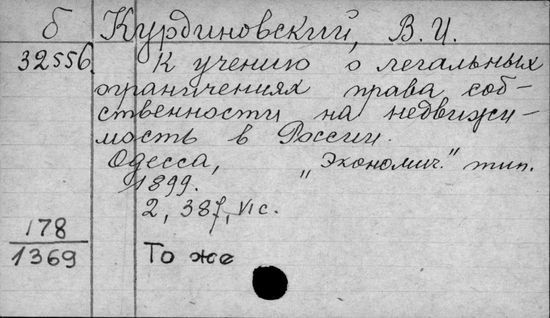 б Курдиновский, В. И.
32556. К учению о легальных
ограничениях права соб-
ственности на недвижи-
мость в России.
Одесса, "Экономич." тип.
1899.
2, 387, VI с.
178
1369 То же